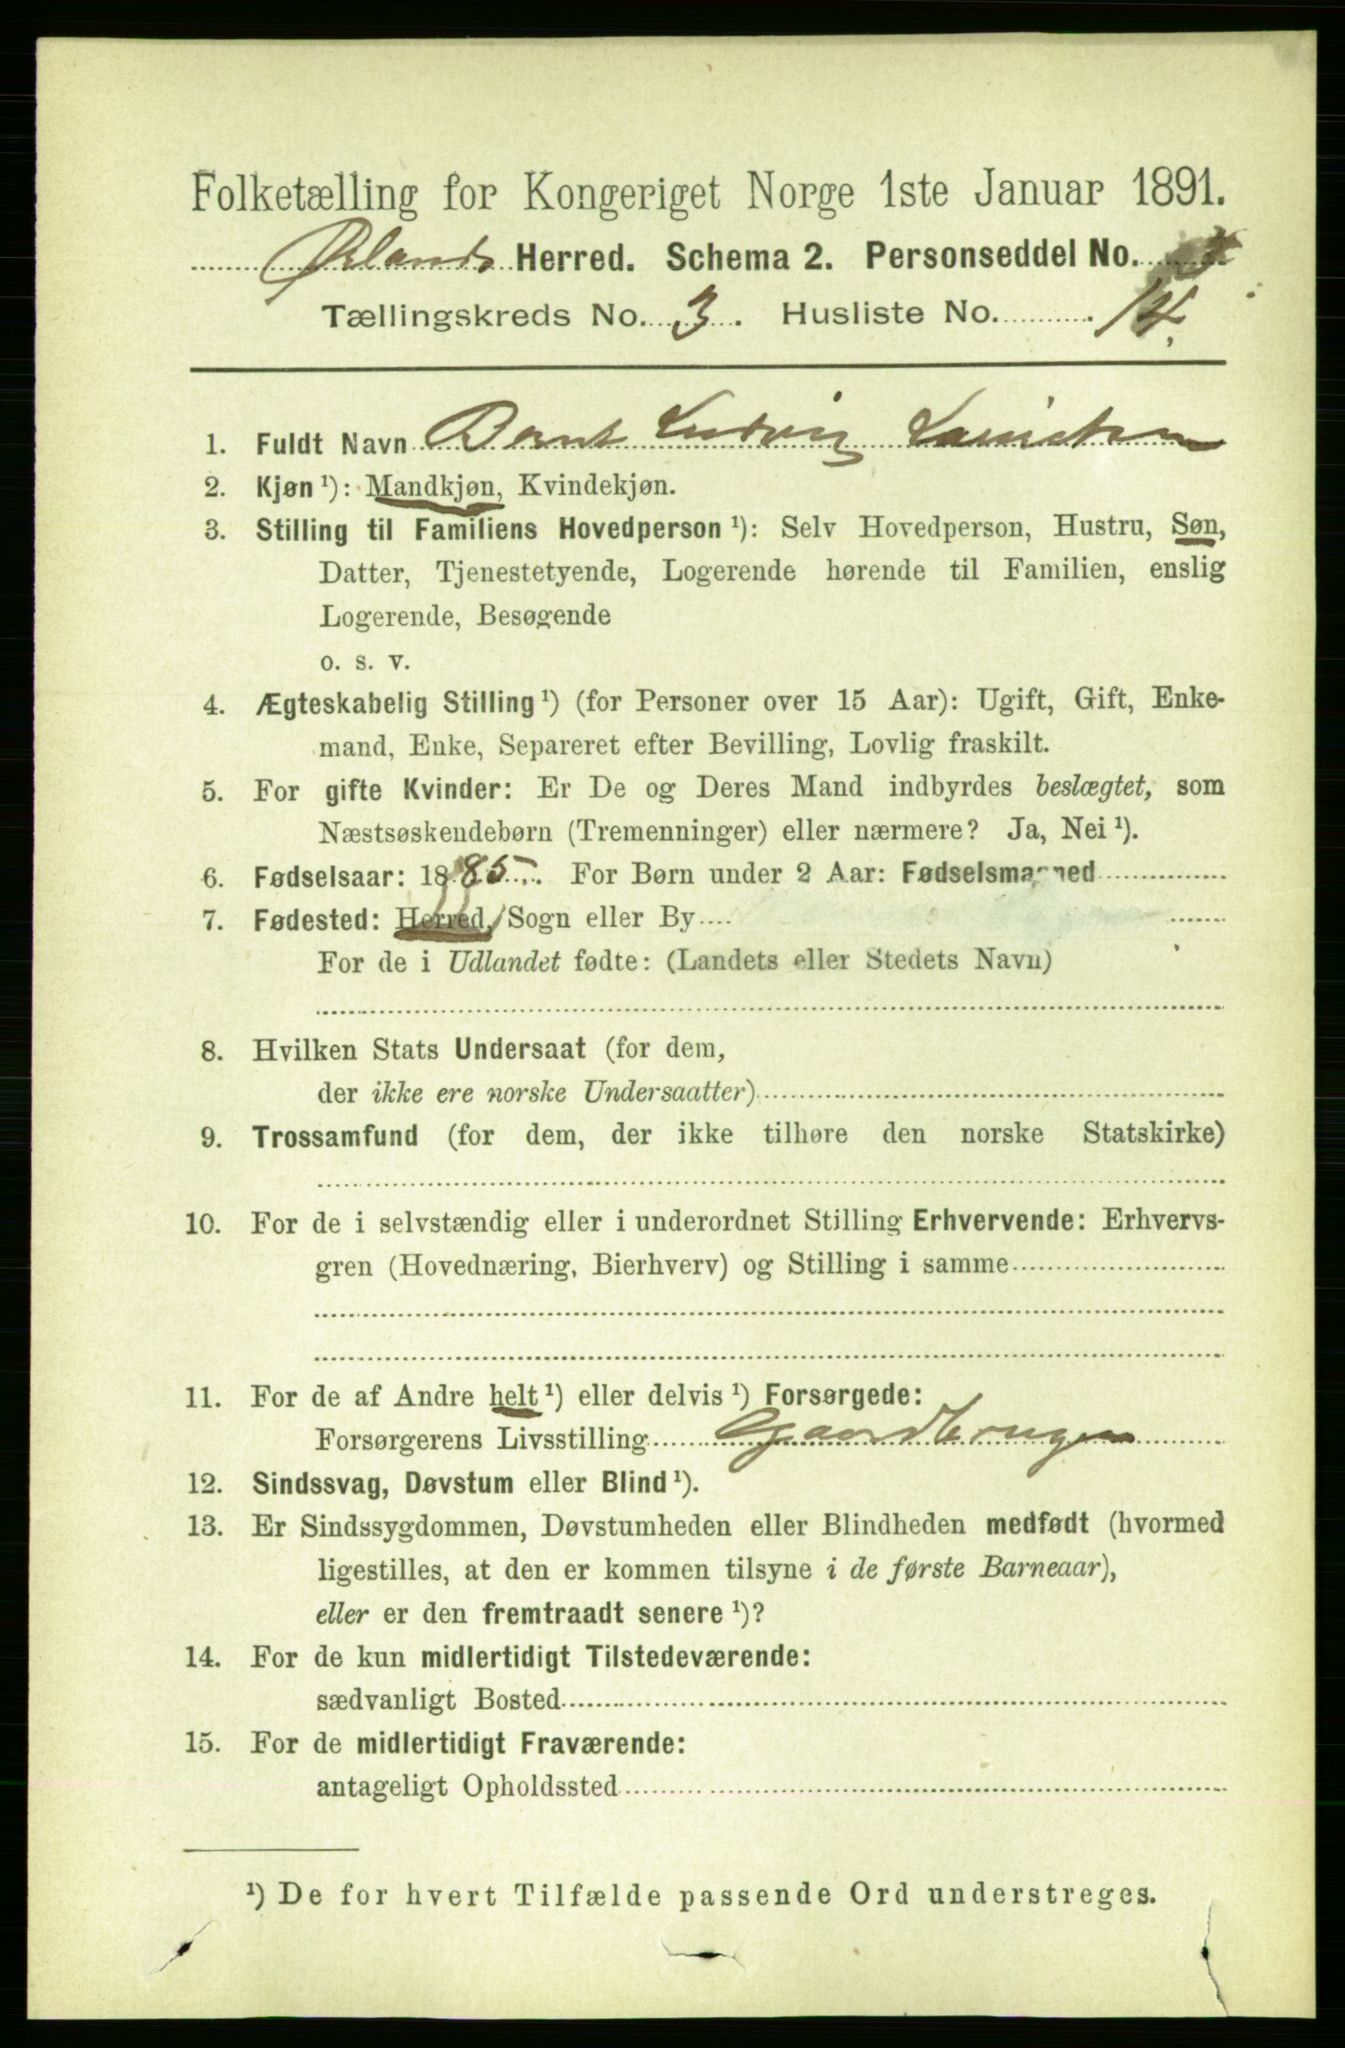 Folketælling for Kongeriget Norge 1ste Januar 1891.
Ørlands Herred. Schema 2. Personseddel No.
Tællingskreds No. 3. Husliste No. 14.
1. Fuldt Navn Bernt Ludvig
2. Kjøn ¹): Mandkjøn, Kvindekjøn.
3. Stilling til Familiens Hovedperson ¹): Selv Hovedperson, Hustru, Søn,
Datter, Tjenestetyende, Logerende hørende til Familien, enslig
Logerende, Besøgende
o. s. v.
4. Ægteskabelig Stilling ¹) (for Personer over 15 Aar): Ugift, Gift, Enke-
mand, Enke, Separeret efter Bevilling, Lovlig fraskilt.
5. For gifte Kvinder: Er De og Deres Mand indbyrdes beslægtet, som
Næstsøskendebørn (Tremenninger) eller nærmere? Ja, Nei ¹).
6. Fødselsaar: 1885. For Børn under 2 Aar: Fødselsmaaned
7. Fødested: Herred, Sogn eller By
For de i Udlandet fødte: (Landets eller Stedets Navn)
8. Hvilken Stats Undersaat (for dem,
der ikke ere norske Undersaatter)
9. Trossamfund (for dem, der ikke tilhøre den norske Statskirke)
10. For de i selvstændig eller i underordnet Stilling Erhvervende: Erhvervs-
gren (Hovednæring, Bierhverv) og Stilling i samme
11. For de af Andre helt ¹) eller delvis ¹) Forsørgede:
Forsørgerens Livsstilling Gaardbruger
12. Sindssvag, Døvstum eller Blind ¹).
13. Er Sindssygdommen, Døvstumheden eller Blindheden medfødt (hvormed
ligestilles, at den er kommen tilsyne i de første Barneaar),
eller er den fremtraadt senere ¹)?
14. For de kun midlertidigt Tilstedeværende:
sædvanligt Bosted
15. For de midlertidigt Fraværende:
antageligt Opholdssted
¹) De for hvert Tilfælde passende Ord understreges.